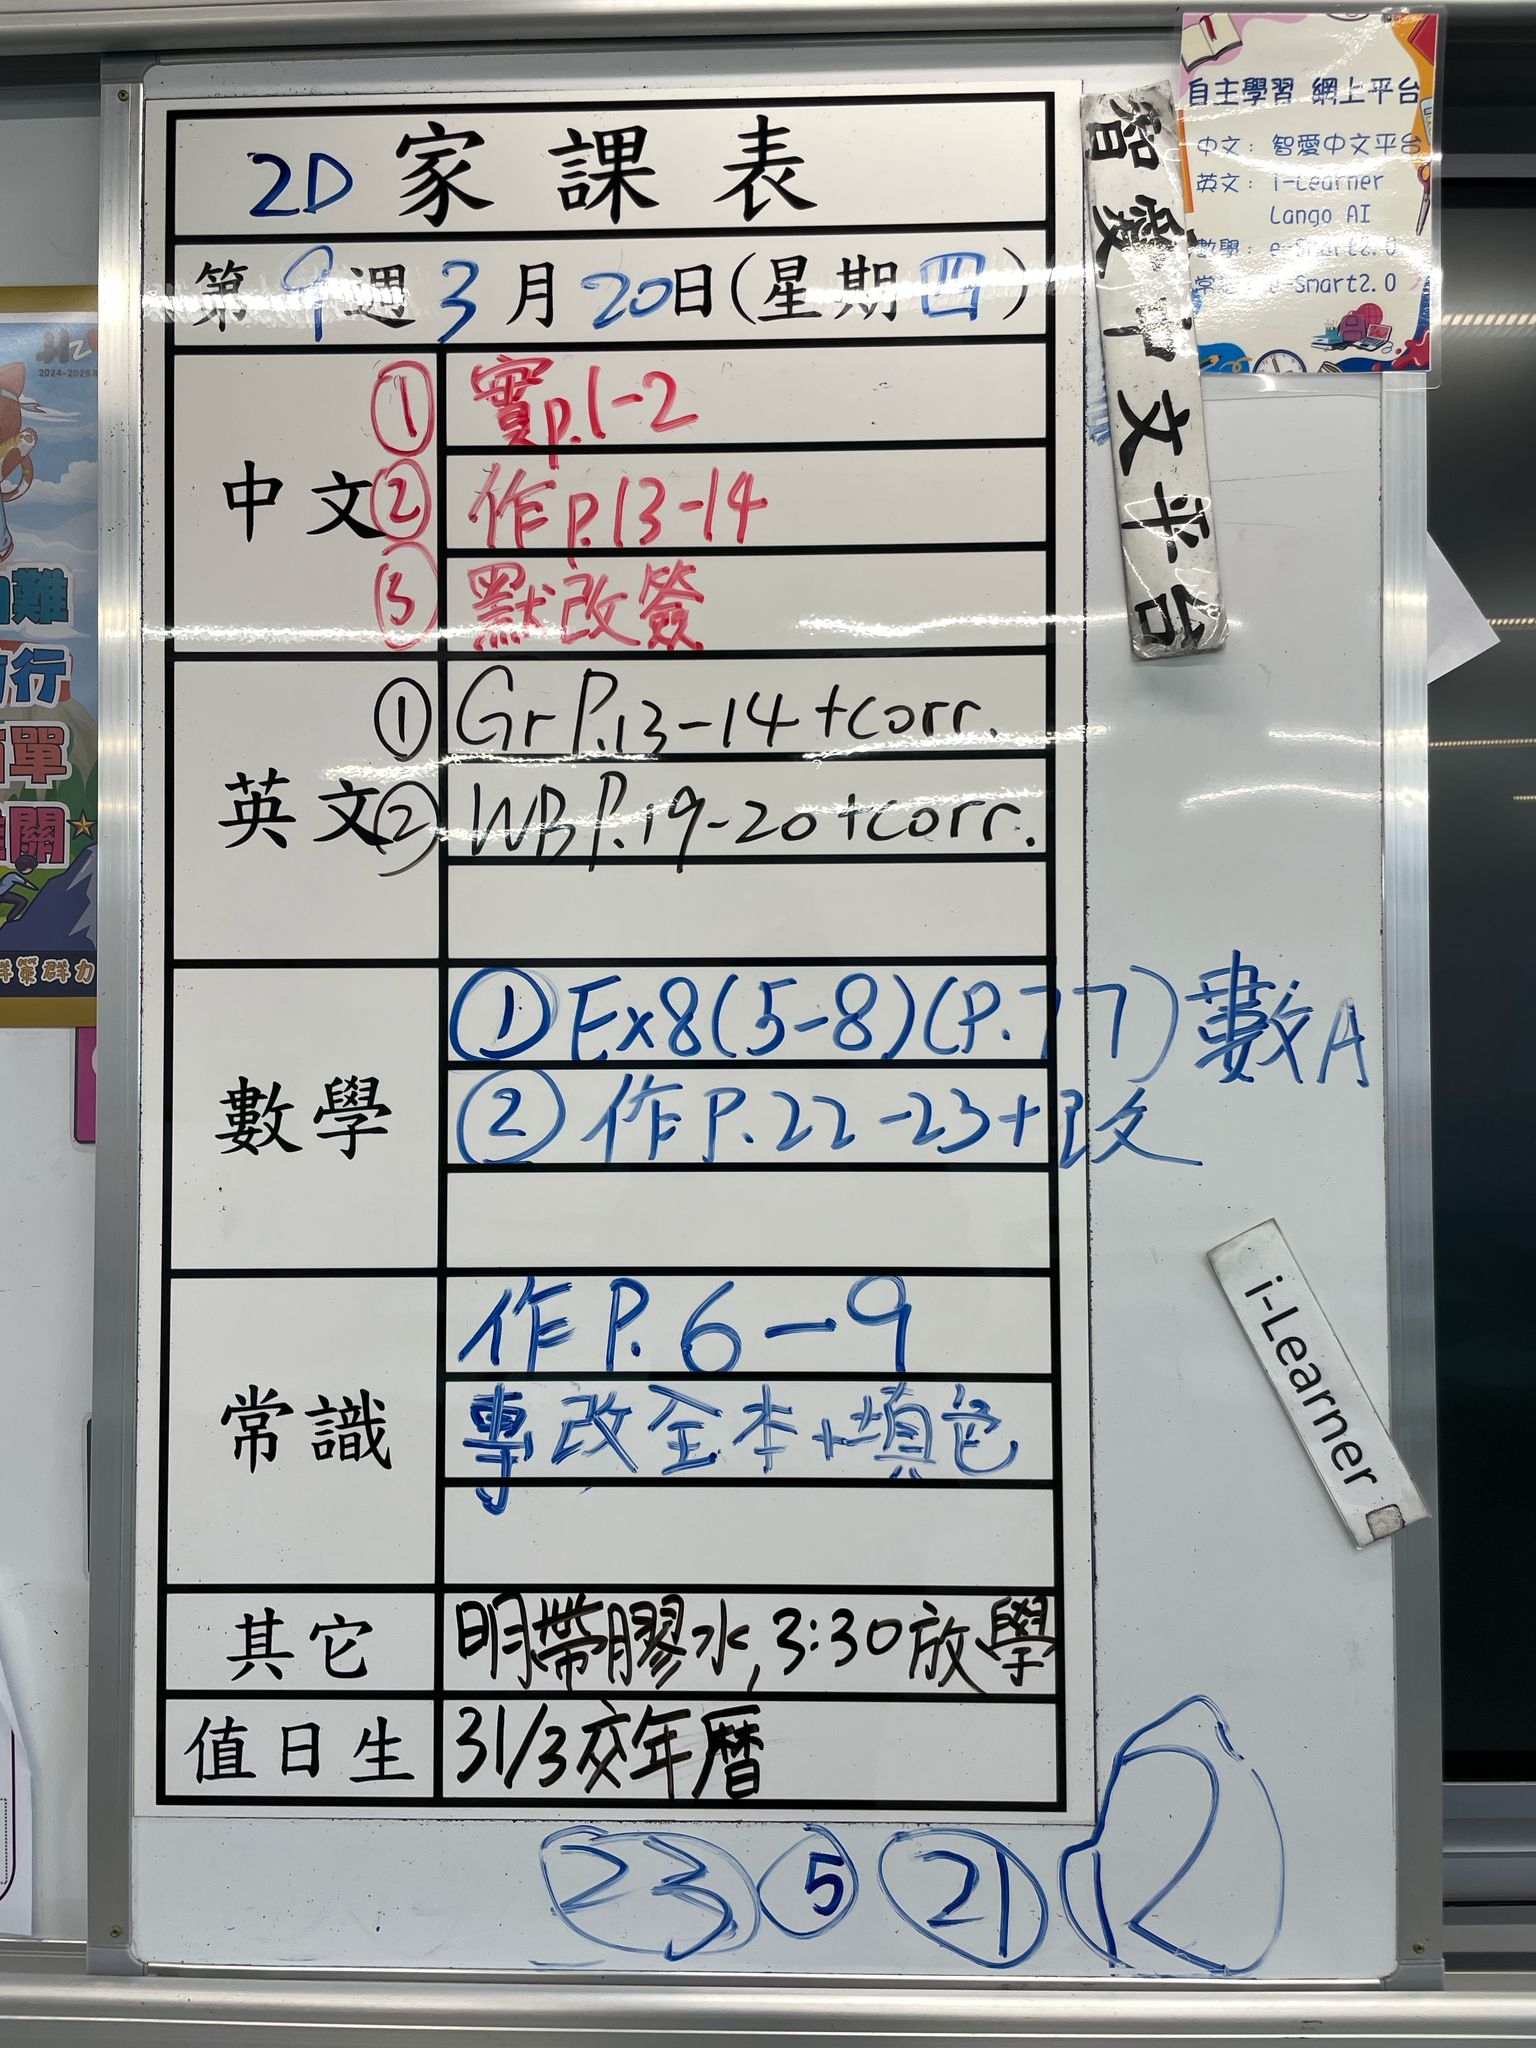 2D 家課表
第9週3月20日(星期四)
中文
① 實p.1-2
② 作p.13-14
③ 默改簽
英文
① Gr P.13-14 +corr.
② WB P.19-20 +corr.
數學
① Ex8(5-8)(P.77) 數A
② 作P.22-23+改
常識
作P.6-9
專改全本+填色
其它
明帶膠水, 3:30放學
值日生
31/3交年曆
23 5 21 12
智愛中文平台
自主學習 網上平台
中文: 智愛中文平台
英文: i-Learner
Lango AI
數學: e-Smart2.0
常識: e-Smart2.0
i-Learner
2024-2025
難
行
單
關
群策群力